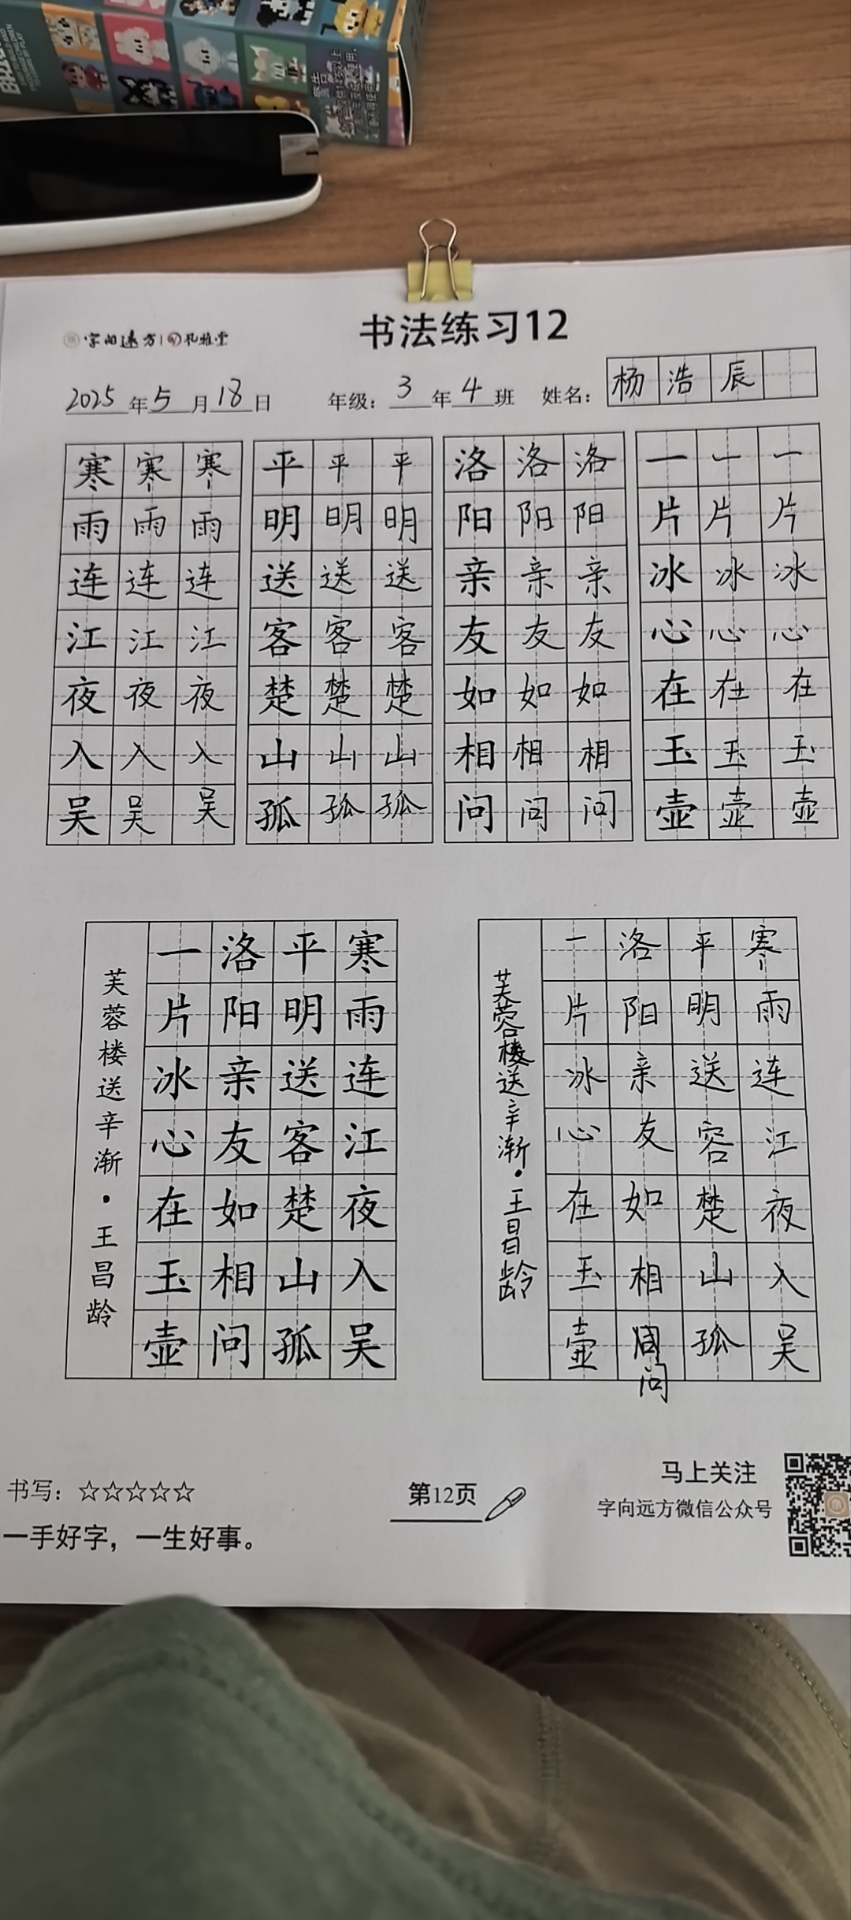 字向远方 孔雅堂
书法练习12
2025年5月18日 年级：3年4班 姓名：杨浩辰
寒寒寒 平平平 洛洛洛 一一一
雨雨雨 明明明 阳阳阳 片片片
连连连 送送送 亲亲亲 冰冰冰
江江江 客客客 友友友 心心心
夜夜夜 楚楚楚 如如如 在在在
入入入 山山山 相相相 玉玉玉
吴吴吴 孤孤孤 问问问 壶壶壶
寒雨连江夜入吴
平明送客楚山孤
洛阳亲友如相问
一片冰心在玉壶
芙蓉楼送辛渐·王昌龄
寒雨连江夜入吴
平明送容楚山孤
洛阳亲友如相问
一片冰心在玉壶
芙蓉楼送辛渐·王昌龄
书写：☆☆☆☆☆
一手好字，一生好事。
第12页
马上关注
字向远方微信公众号